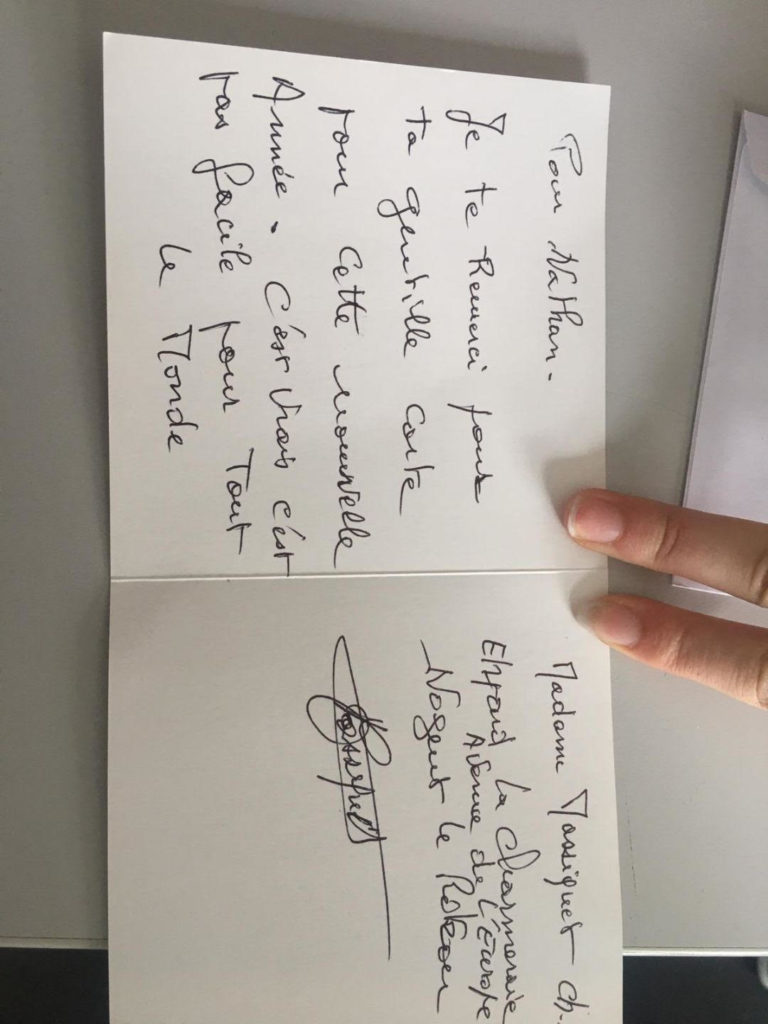 Pour Nathan.
Je te Remerci pour
ta gentille carte
pour cette nouvelle
Année. C'est vrais c'est
pas facile pour Tout
le Monde
Madame Massiquet Ch.
Ehpad La Charmeraie
Avenue de L'Europe
Nogent le Rotrou